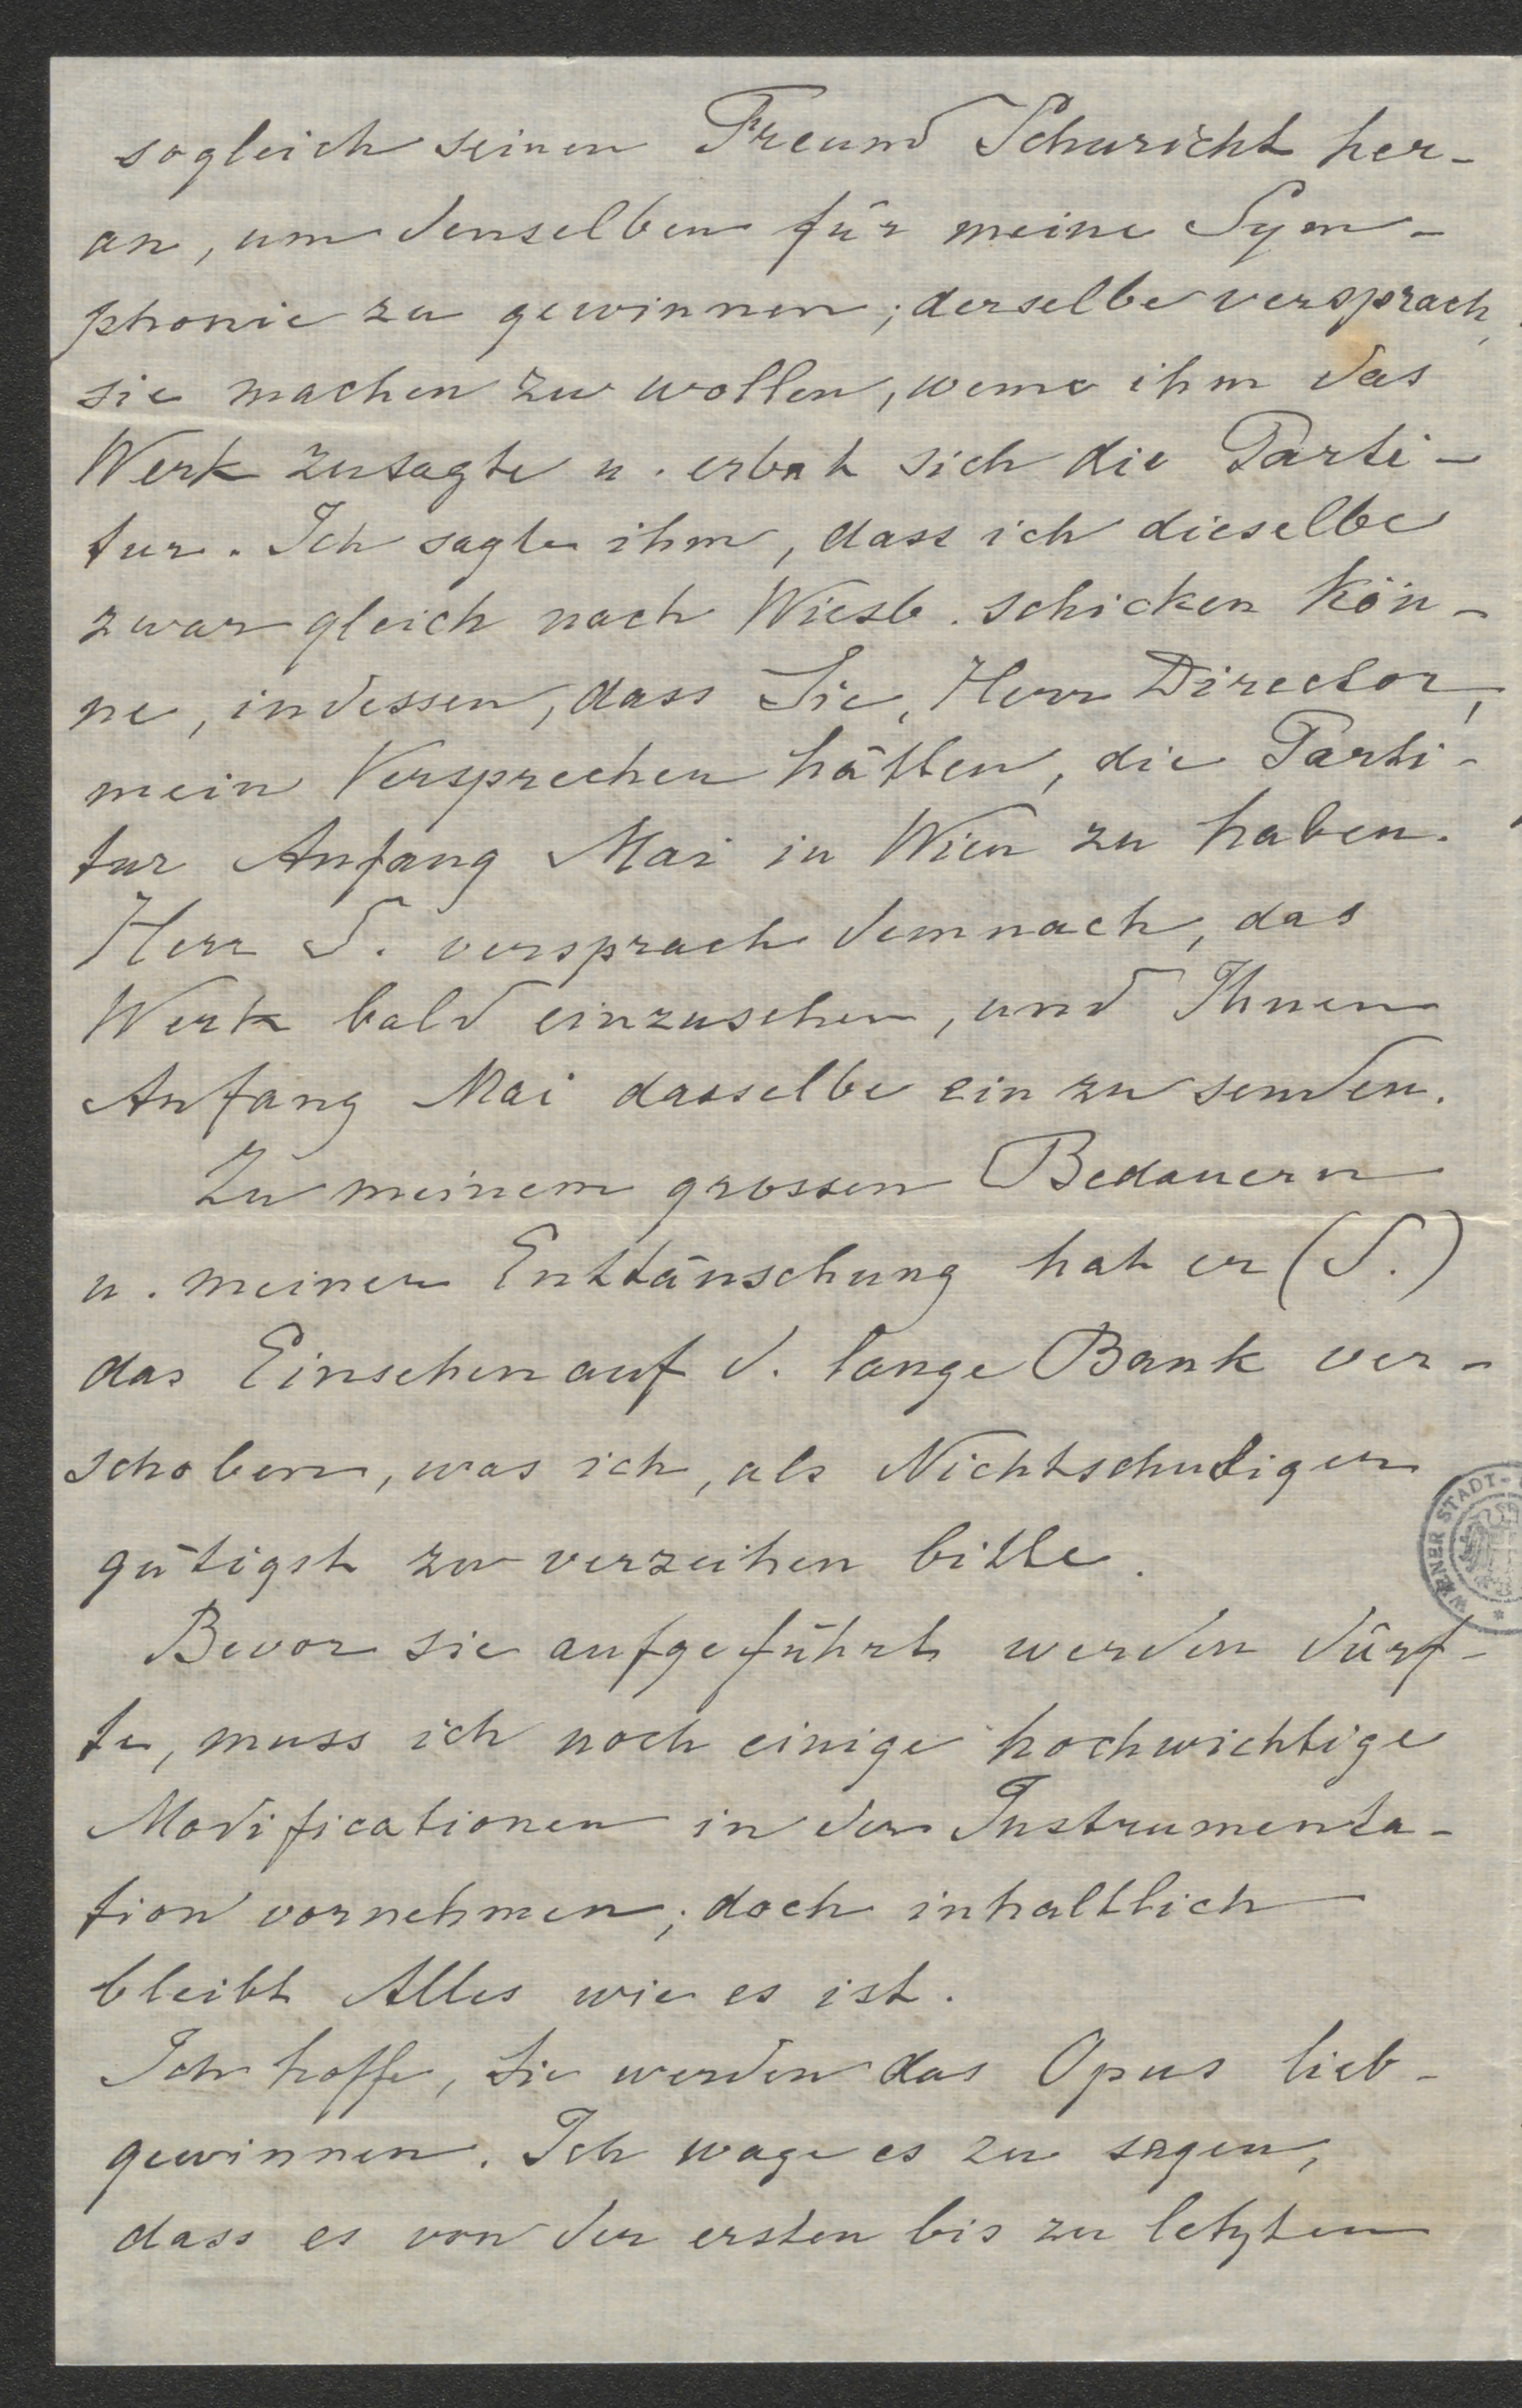 sogleich seinen Freund Schuricht her-
an, um denselben für meine Sym-
phonie zu gewinnen; derselbe versprach,
sie machen zu wollen, wenn ihm das
Werk zusagte u. erbat sich die Parti-
tur. Ich sagte ihm, dass ich dieselbe
zwar gleich nach Wiesb. schicken kön-
ne, indessen, dass Sie, Herr Director,
mein Versprechen hätten, die Parti-
tur Anfang Mai in Wien zu haben.
Herr S. versprach demnach, das
Werk bald einzusehen, und Ihnen
Anfang Mai dasselbe ein zu senden.
Zu meinem grossen Bedauern
u. meiner Enttäuschung hat er (S.)
das Einsehen auf d. lange Bank ver-
schoben, was ich, als Nichtschuldiger
gütigst zu verzeihen bitte.
Bevor sie aufgeführt werden dürf-
te, muss ich noch einige hochwichtige
Modificationen in der Instrumenta-
tion vornehmen; doch inhaltlich
bleibt Alles wie es ist.
Ich hoffe, Sie werden das Opus lieb-
gewinnen. Ich wage es zu sagen,
dass es von der ersten bis zu letzten
WIENER STADT-